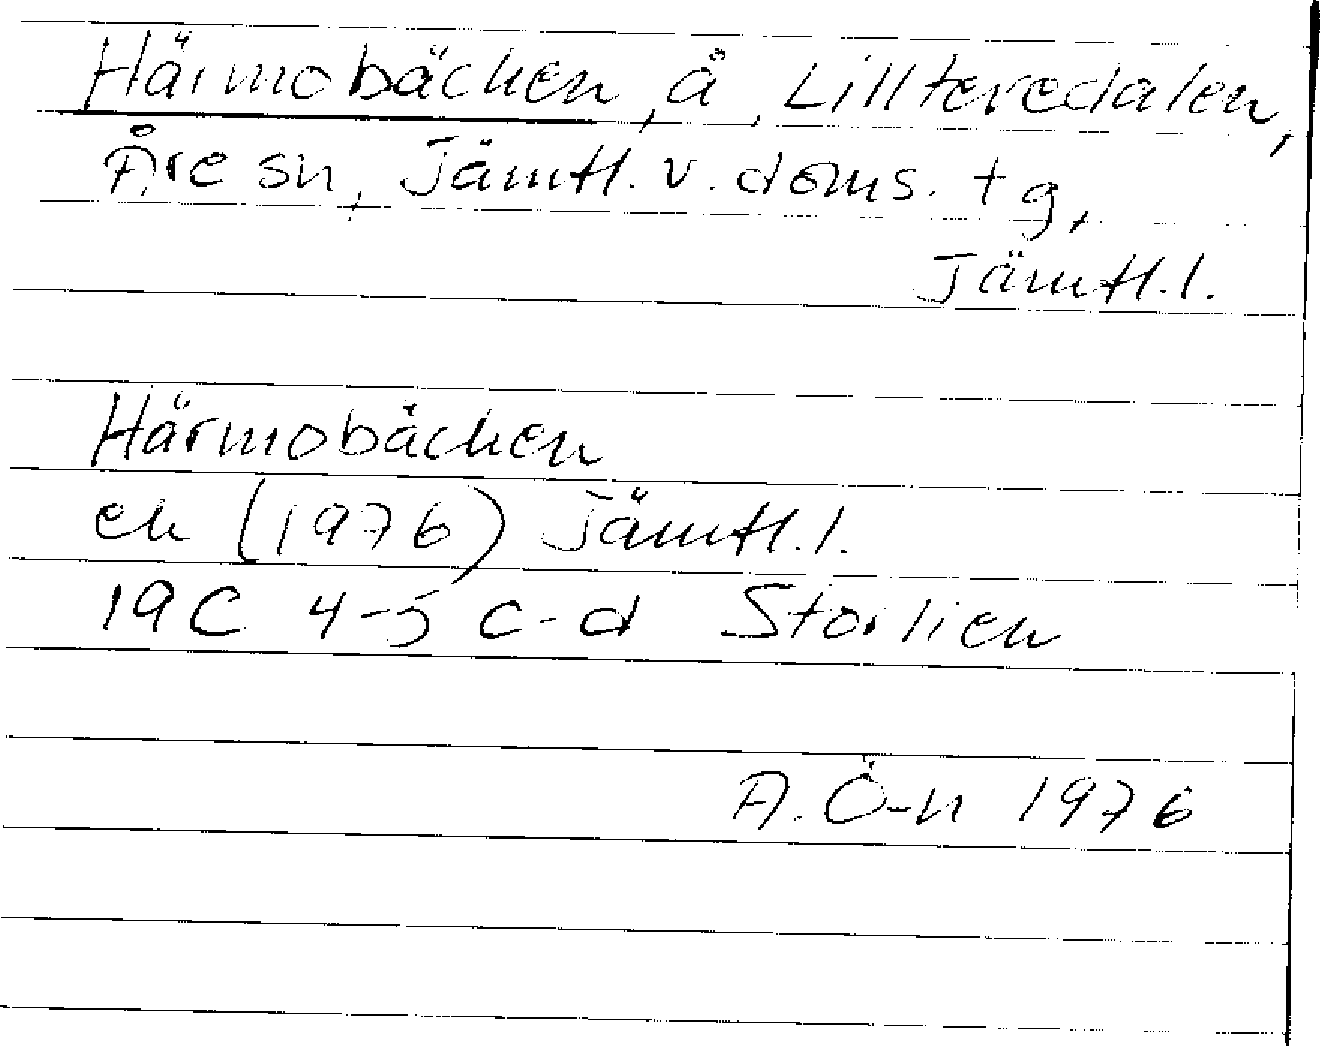 Härmobäcken, å, Lillteredalen,
Åre sn, Jämtl. v. doms. tg,
Jämtl. l.
Härmobäcken
ek (1976) Jämtl. l.
19C 4-5 c-d Storlien
A. Ö-n 1976